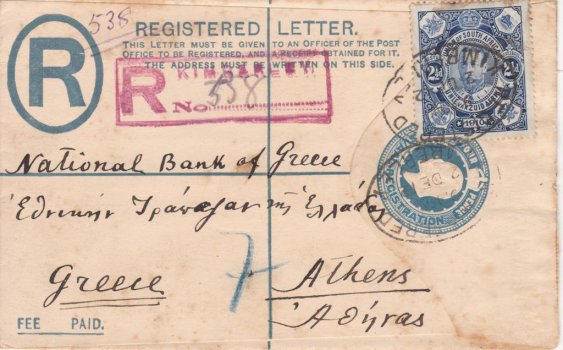 538
REGISTERED LETTER.
THIS LETTER MUST BE GIVEN TO AN OFFICER OF THE POST
OFFICE TO BE REGISTERED, AND A RECEIPT OBTAINED FOR IT.
THE ADDRESS MUST BE WRITTEN ON THIS SIDE.
R
R
No. 538
OF SOUTH AFRICA
2½
1910
REGISTRATION
National Bank of Greece
Ἐθνικὴν Τράπεζαν τῆς Ἑλλάδο
Greece
7
Athens
Ἀθήνας
FEE PAID.